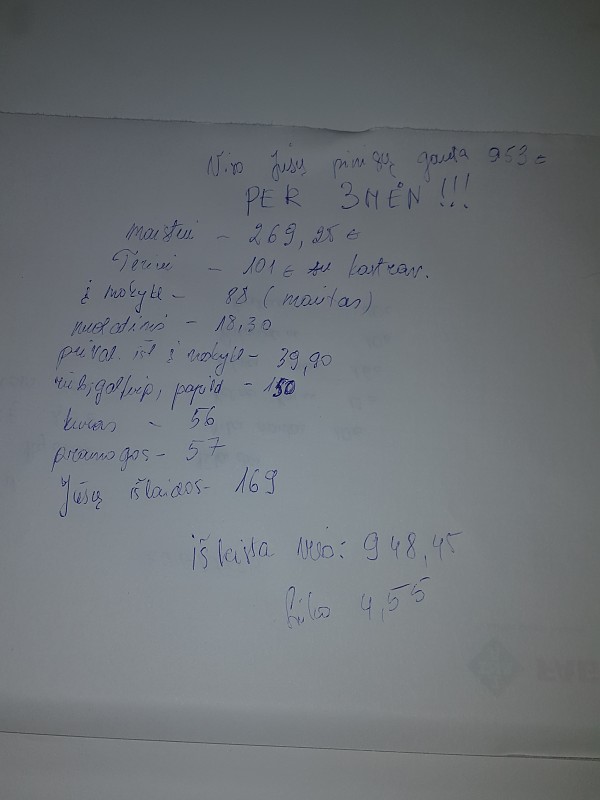 Viso Jūsų pinigų gauta 953 €
PER 3 MĖN!!!
maistui – 269,25 €
– 101 € su kastrav.
į mokyklą – 88 (maistas)
nuolatinis – 18,30
privat. išl į mokykl – 39,90
rūb, galvip, papild – 150
kuras – 56
pramogos – 57
Jūsų išlaidos – 169
išleista viso: 948,45
Liko 4,55